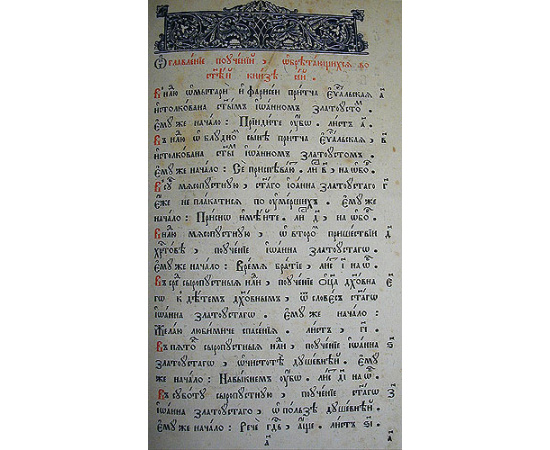 Ѡглавленїе поученїй, ѡбрѣтающихсѧ во
ст҃ѣй книзѣ сїй.
В нлю ѡмытари и фарисеи притча еѵⷢальскаѧ а҃
истолкована ст҃ымъ іѡанномъ златоустоⷨ.
емуже начало: Прїидите оубѡ. листъ а҃.
Въ нлю ѡ блуднѡⷨ сынѣ притча еѵⷢальскаѧ, в҃
истолкована ст҃ы іѡанномъ златоустомъ.
емуже начало: Се приспѣваю. ли в҃, на ѡбо.
В суⷠ мѧсопустную, ст҃аго іоанна златоустаго г҃
еже не плакатисѧ по оумершихъ. емуже
начало: Приснѡ имѣите. ли д҃, на ѡбо.
В нлю мѧсопустную, ѡ второⷨ пришествїи д҃
хр҃товѣ, поученїе іѡанна златоустагѡ.
емуже начало: Времѧ братїе, лис і҃ на ѡⷠ.
Въ среⷣ сыропустныѧ нлѧ, поученїе оц҃а дх҃овна е҃
гѡ к дѣтемъ дх҃овнымъ, ѿ словесъ ст҃агѡ
іѡанна златоустагѡ. емуже начало:
Желаю любимиче спасенїѧ. листъ, г҃і.
Въ пѧтоⷦ сыропустныѧ нлѧ, поученїе іѡанна ѕ҃
златоустагѡ, ѡ чистотѣ душевнѣй. ему
же начало: Навыкнемъ оубѡ. лис д҃і на ѡⷠ.
В суботу сыропустную, поученїе ст҃агѡ з҃
іѡанна златоустаго, ѡ пользѣ душевнѣй.
емуже начало: Рече гд҃ь, аще. листъ ѕ҃і.
а҃